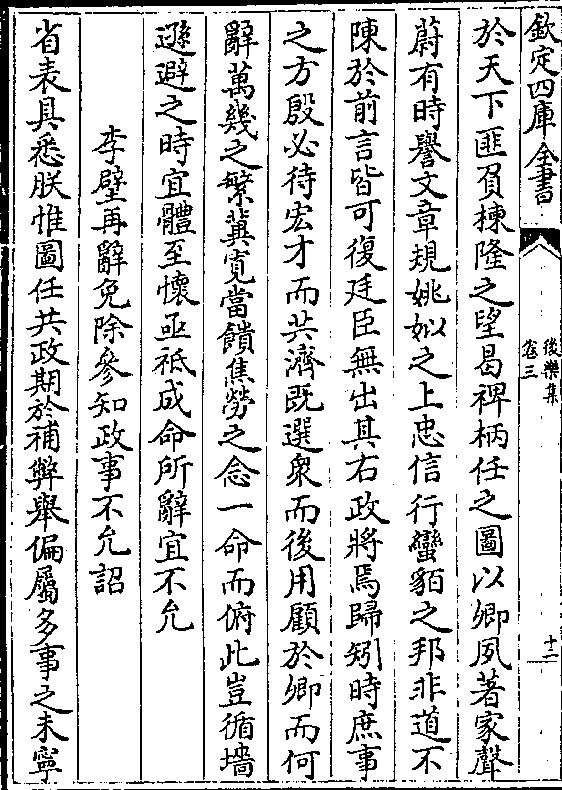 欽定四庫全書
後樂集
卷三
十二
於天下匪負棟隆之望曷裨柄任之圖以卿夙著家聲
蔚有時譽文章規姚姒之上忠信行蠻貊之邦非道不
陳於前言皆可復廷臣無出其右政將焉歸矧時庶事
之方殷必待宏才而共濟既選衆而後用顧於卿而何
辭萬幾之繁冀寛當饋焦勞之念一命而俯此豈循墻
遜避之時宜體至懷亟祗成命所辭宜不允
李壁再辭免除參知政事不允詔
省表具悉朕惟圖任共政期於補弊舉偏屬多事之未寧